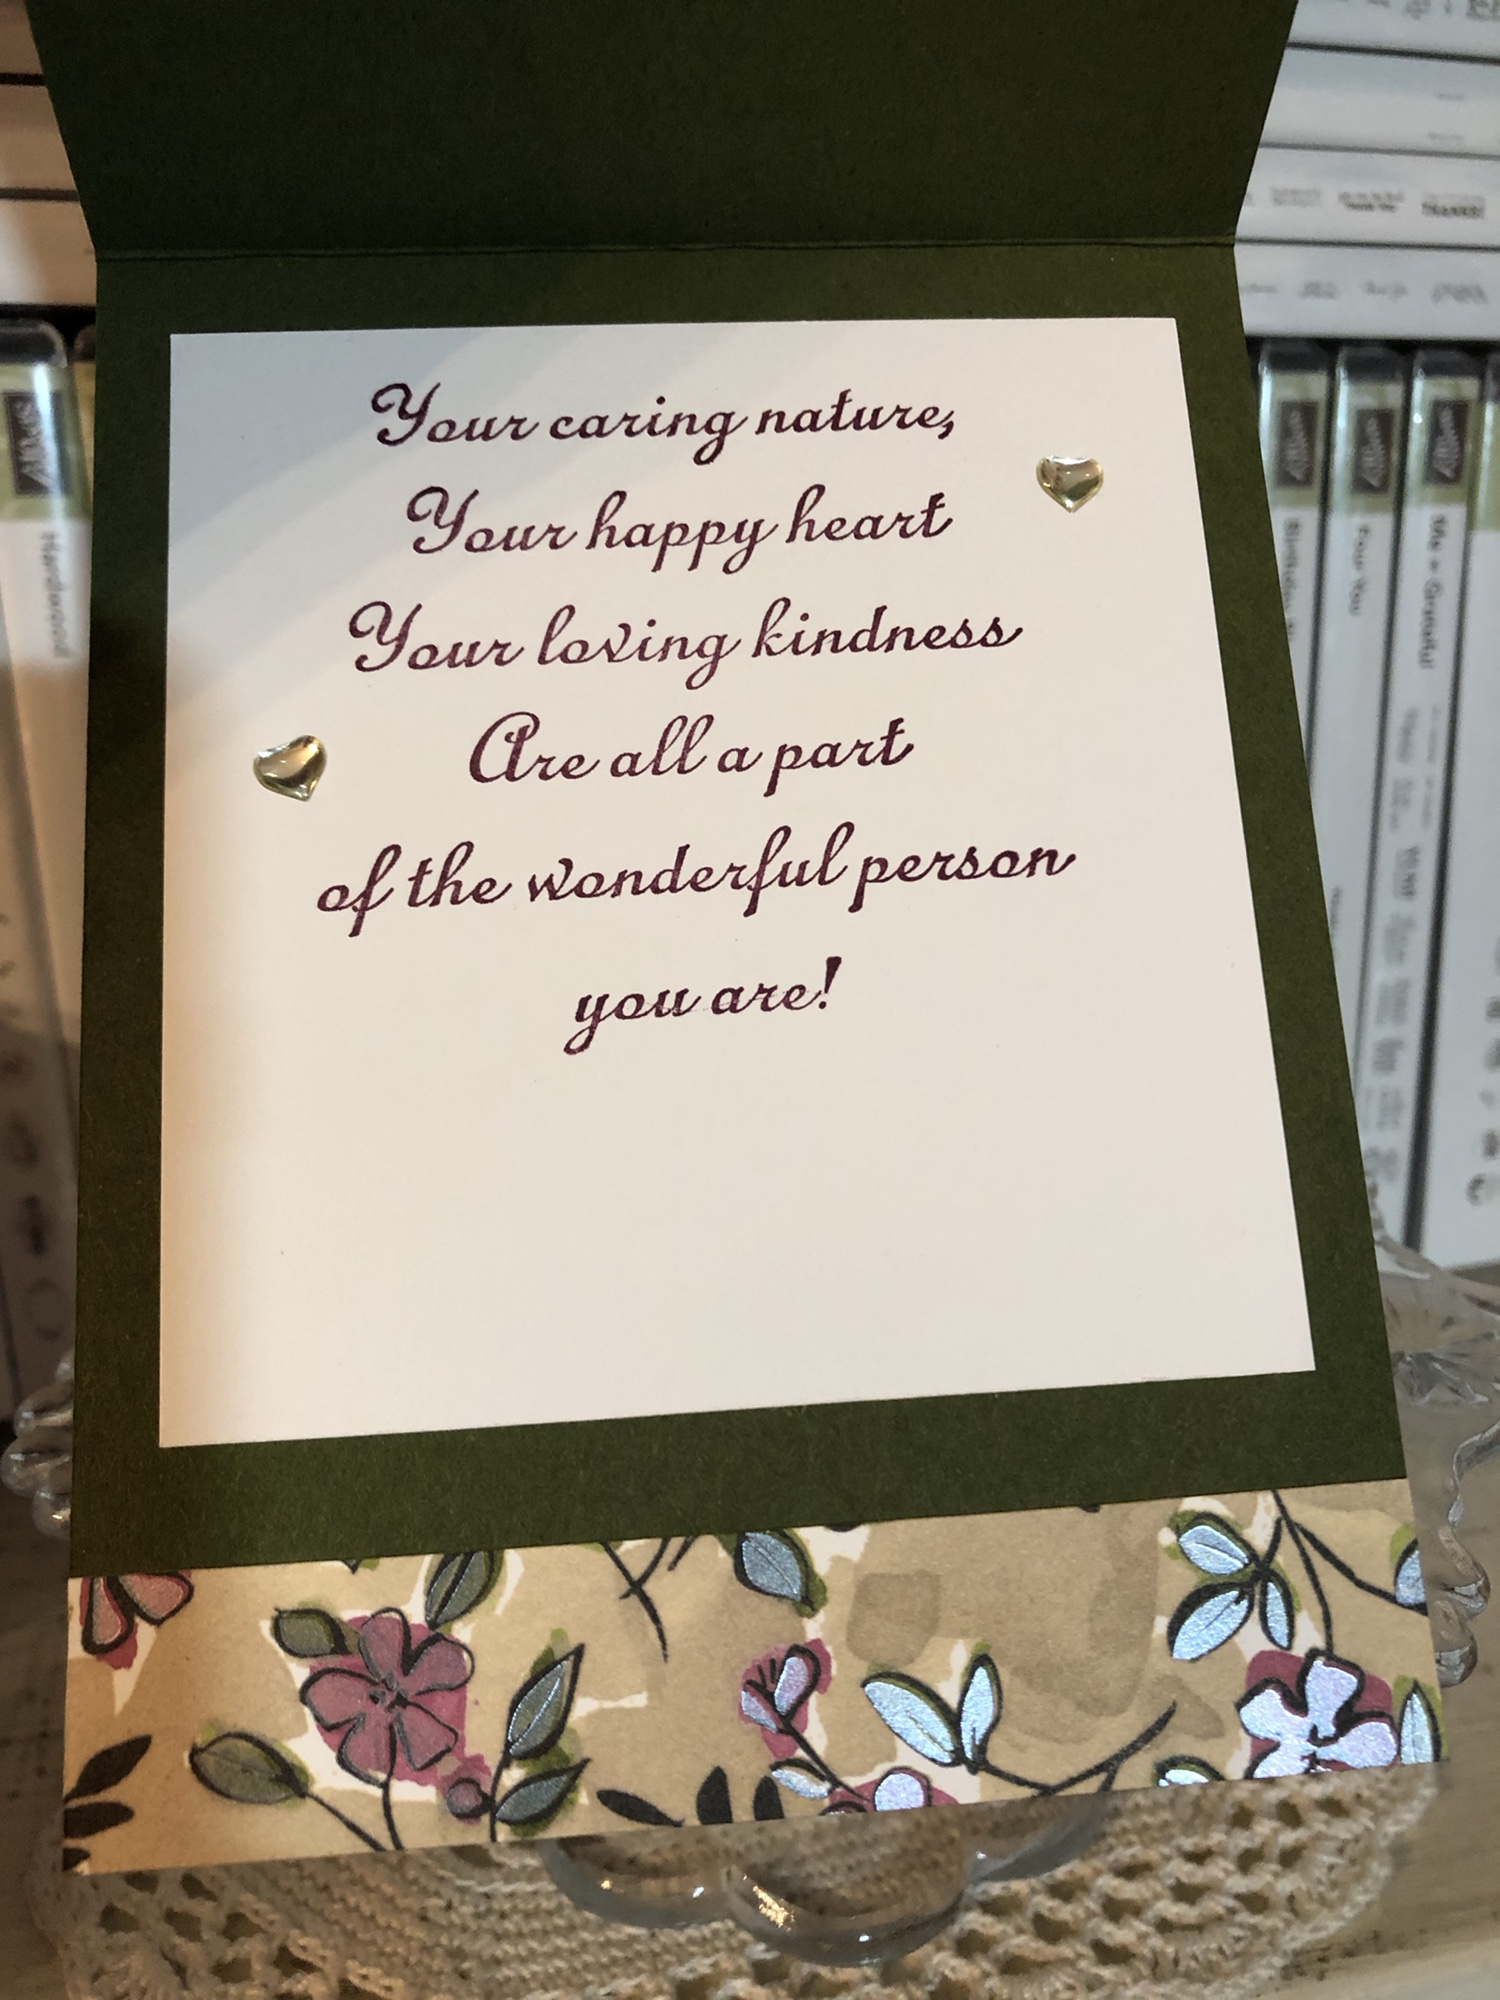 Your caring nature,
Your happy heart
Your loving kindness
Are all a part
of the wonderful person
you are!
THANKS!
Hardwood
Birthday
Four You
Me = Grateful